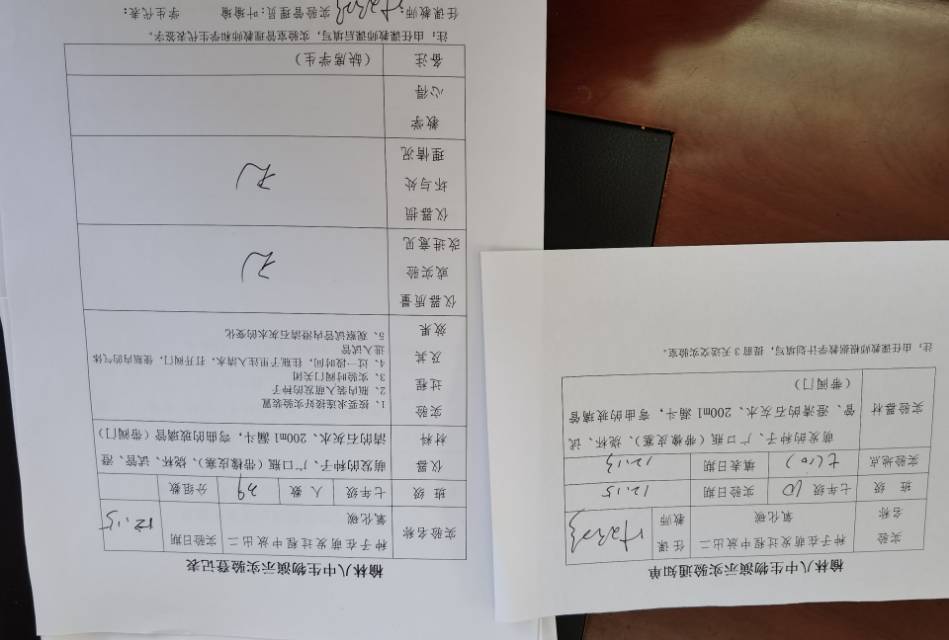 榆林八中生物演示实验登记表
实验名称 种子在萌发过程中放出二氧化碳 实验日期 12.15
班 级 七年级 人 数 39 分组数
仪器材料 萌发的种子、广口瓶（带橡皮塞）、烧杯、试管、澄
清的石灰水、200ml 漏斗，弯曲的玻璃管（带阀门）
实验过程及其效果
1、按要求连接好实验装置
2、瓶内装入萌发的种子
3、实验时阀门关闭
4、过一段时间，往瓶子里注入清水，打开阀门，使瓶内的气体
进入试管
5、观察试管内澄清石灰水的变化
仪器质量或实验改进意见 无
仪器损坏与处理情况 无
教学心得
备注 （缺席学生）
注：由任课教师课后填写，实验室管理教师和学生代表签字。
任课教师： 实验管理员：叶瑜瑜 学生代表：
榆林八中生物演示实验通知单
实验名称 种子在萌发过程中放出二氧化碳 任课教师
班 级 七年级 10 实验日期 12.15
实验地点 七(10) 填表日期 12.13
实验器材 萌发的种子、广口瓶（带橡皮塞）、烧杯、试
管、澄清的石灰水、200ml 漏斗，弯曲的玻璃管
（带阀门）
注：由任课教师根据教学计划填写，提前 3 天送交实验室。